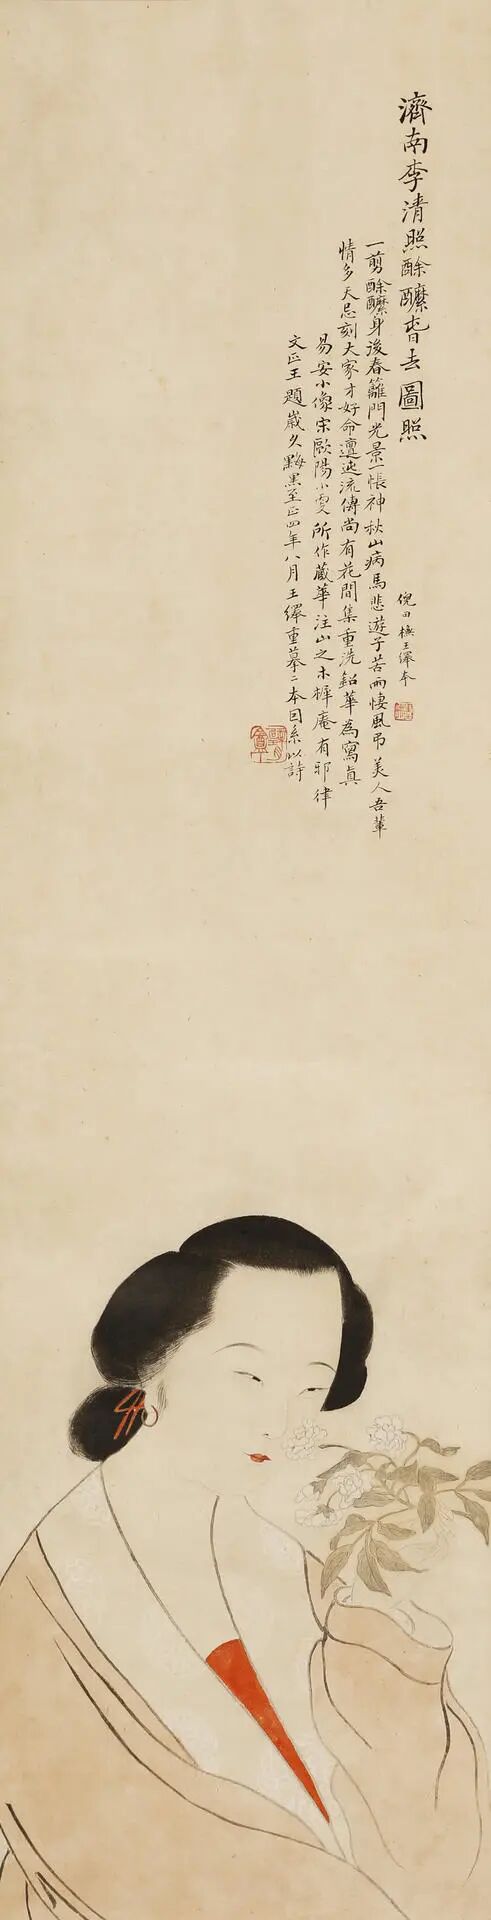 濟南李清照酴醿春去圖照
倪田橅王繹本
一剪酴醿身後春籬門光景一悵神秋山病馬悲遊子苦雨悽風弔美人吾輩
情多天忌刻大家才好命邅迍流傳尚有花間集重洗鉛華為寫真
易安小像宋歐陽小雯所作藏華注山之木樨庵有邪律
文正王題歲久黝黑至正四年八月王繹重摹二本因系以詩